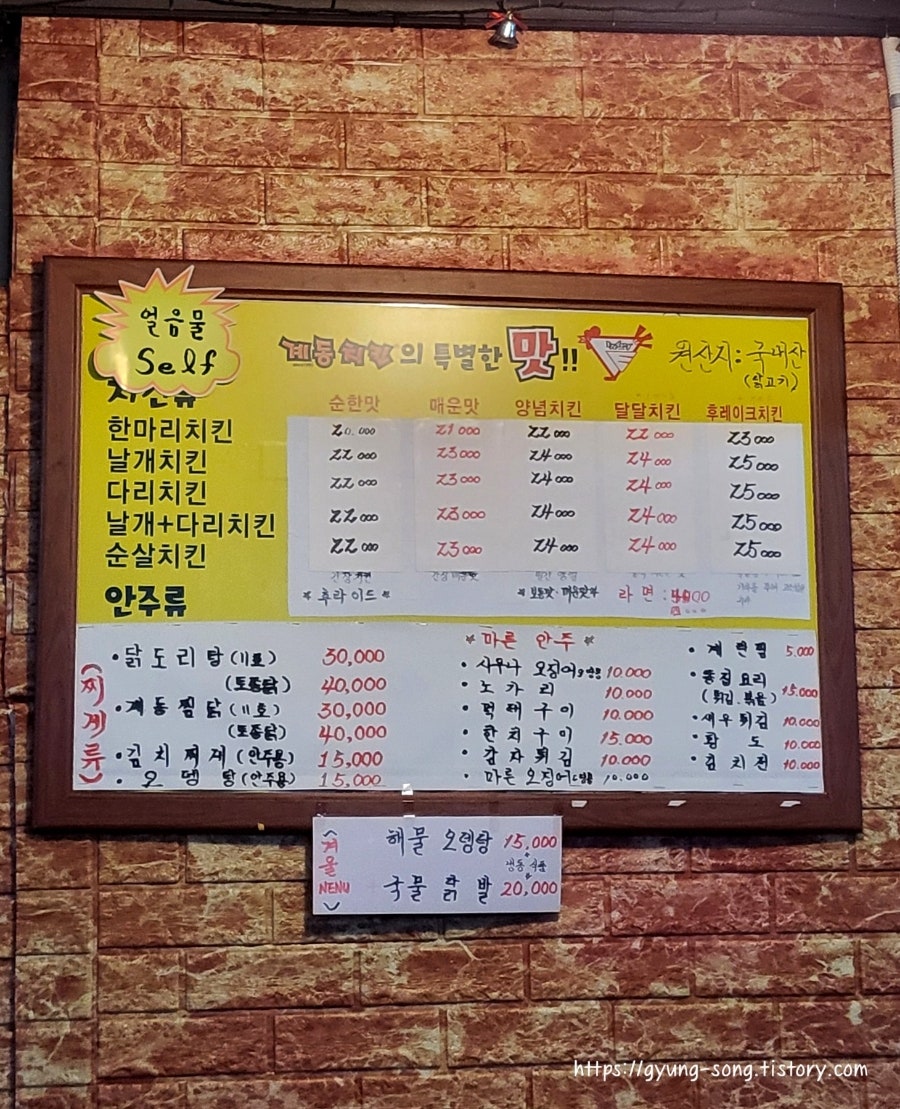 얼음물
Self
계동치킨의 특별한 맛!!
원산지: 국내산
(닭고기)
순한맛 매운맛 양념치킨 달달치킨 후레이크치킨
한마리치킨 20.000 21000 22000 22000 23000
날개치킨 22000 23000 24000 24000 25000
다리치킨 22000 23000 24000 24000 25000
날개+다리치킨 22000 23000 24000 24000 25000
순살치킨 22000 23000 24000 24000 25000
* 후라이드 *
라면 :
안주류
(찌개류)
•닭도리탕 (11호) 30,000
(토종닭) 40,000
•계동찜닭 (11호) 30,000
(토종닭) 40,000
•김치찌개 (안주용) 15,000
•오뎅탕 (안주용) 15,000
* 마른 안주 *
• 사우나 오징어 10.000
• 노가리 10.000
• 먹태구이 10.000
• 한치구이 15.000
• 감자튀김 10.000
• 마른 오징어 10.000
• 계란찜 5.000
• 똥집 요리
(튀김.볶음) 15.000
•새우튀김 10.000
• 황도 10.000
• 김치전 10.000
<겨울 MENU>
해물 오뎅탕 15,000
냉동식품
국물 닭발 20,000
https://gyung-song.tistory.com